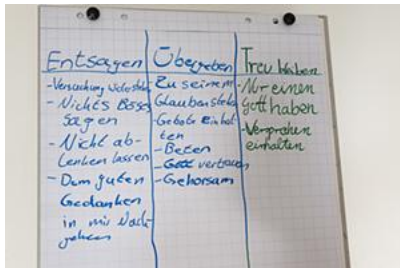 Entsagen
-Versuchung widerstehen
-Nichts Böses
sagen
-Nicht ab-
lenken lassen
-Dem guten
Gedanken
in mir Nach-
gehen
Übergeben
Zu seinem
Glauben stehen
-Gebote einhal-
ten
-Beten
-Gott vertrauen
-Gehorsam
Treu bleiben
-Nur einen
Gott haben
-Versprechen
einhalten